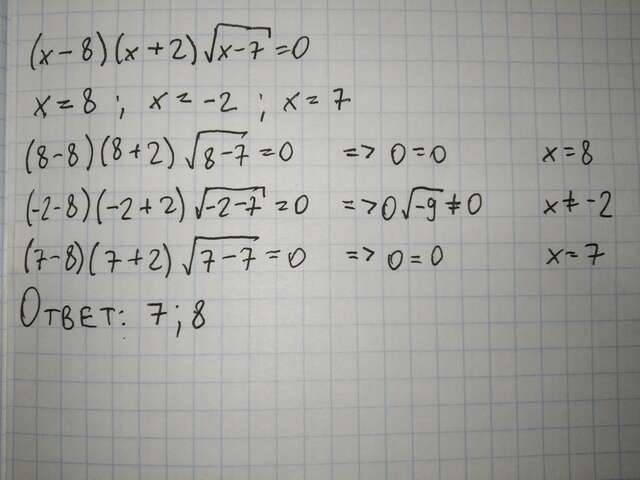 (x-8)(x+2)√(x-7)=0
x=8; x=-2; x=7
(8-8)(8+2)√(8-7)=0 => 0=0 x=8
(-2-8)(-2+2)√(-2-7)=0 => 0√-9≠0 x≠-2
(7-8)(7+2)√(7-7)=0 => 0=0 x=7
Ответ: 7;8